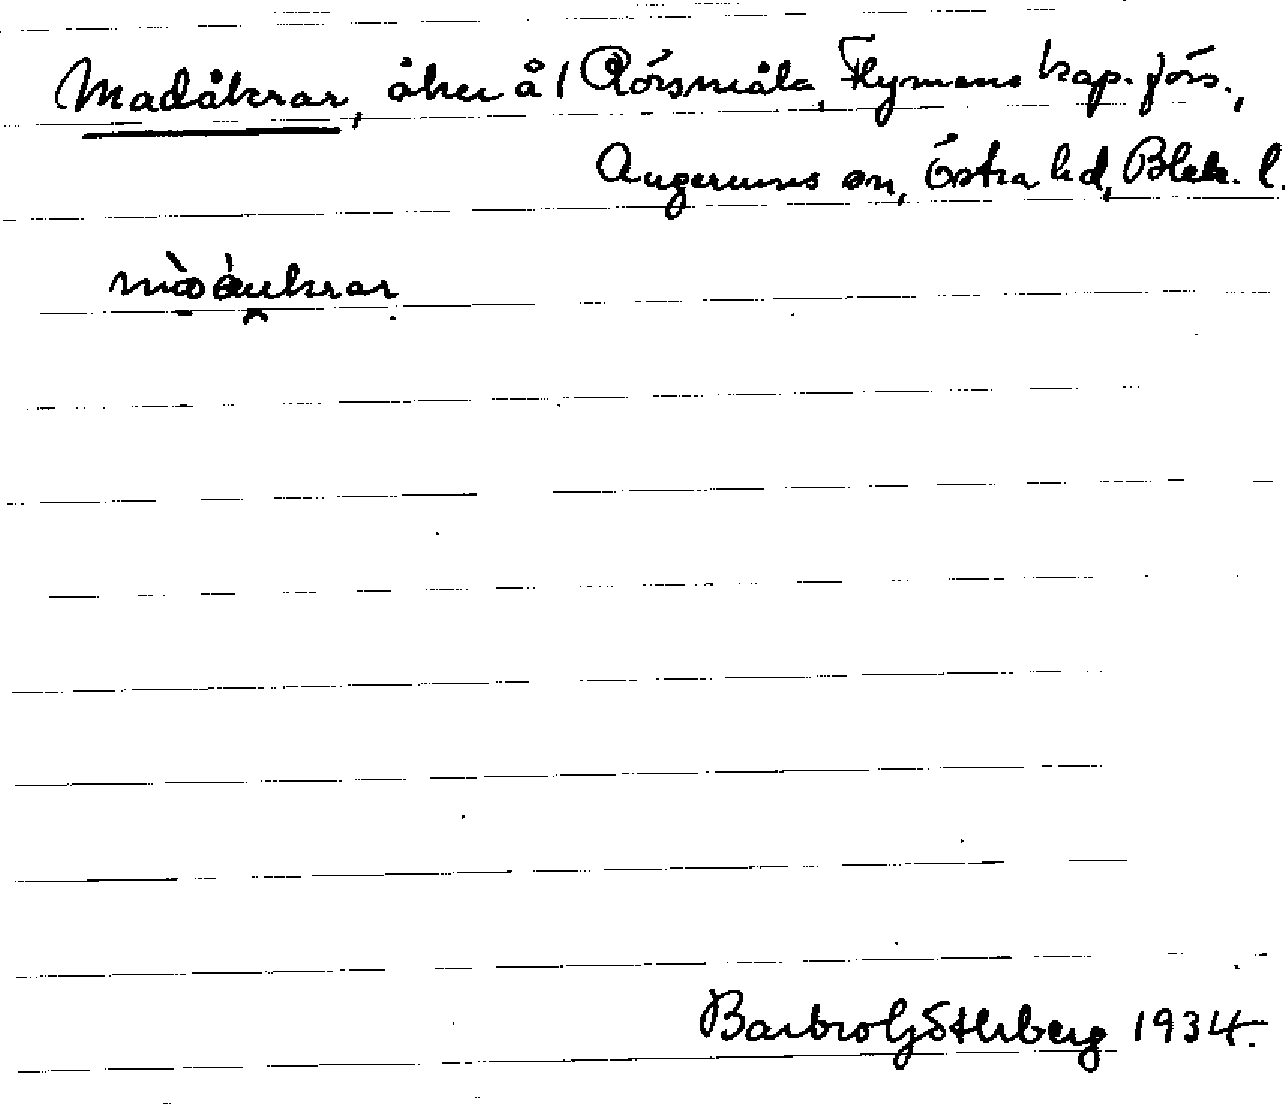 Madåkrar, åker å 1 Rörsmåla, Flymens kap. förs.,
Augerums sn, Östra hd, Blek. l.
Barbro Götherberg 1934.